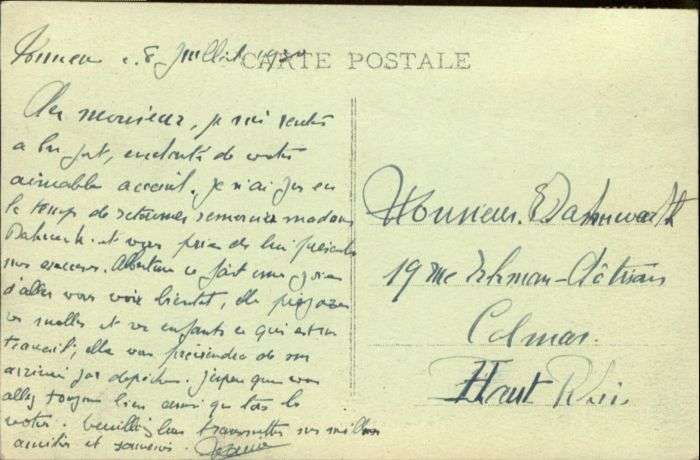 8 Juillet
CARTE POSTALE
Cher monsieur, je suis rentré
à bon port, enchanté de votre
aimable accueil. Je n'ai pas eu
le temps de retourner remercier madame
et vous prie de lui présenter
mes excuses. ce fait une joie
d'aller vous voir bientôt, elle
ses malles et ses enfants ce qui est un
travail, elle vous préviendra de son
arrivée par dépêche. J'espère que vous
allez toujours bien ainsi que tous les
vôtres. Veuillez leur transmettre mes meilleurs
amitiés et souvenirs.
Monsieur
19 rue
Colmar
Haut Rhin